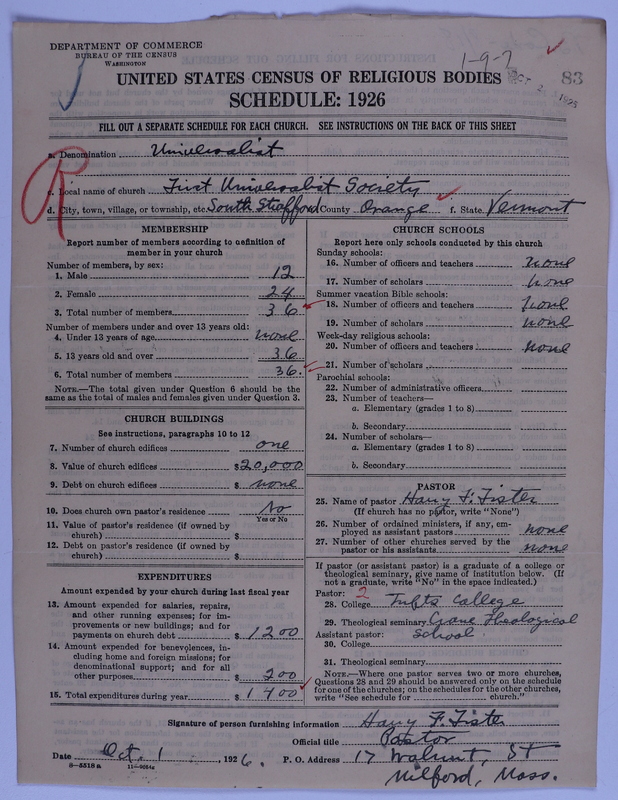 DEPARTMENT OF COMMERCE
BUREAU OF THE CENSUS
WASHINGTON
1-9-7
83
UNITED STATES CENSUS OF RELIGIOUS BODIES
SCHEDULE: 1926
FILL OUT A SEPARATE SCHEDULE FOR EACH CHURCH. SEE INSTRUCTIONS ON THE BACK OF THIS SHEET
R
a. Denomination Universalist
c. Local name of church First Universalist Society
d. City, town, village, or township, etc. South Strafford County Orange f. State Vermont
MEMBERSHIP
Report number of members according to definition of member in your church
Number of members, by sex:
1. Male 12
2. Female 24
3. Total number of members 36
Number of members under and over 13 years old:
4. Under 13 years of age none
5. 13 years old and over 36
6. Total number of members 36.
NOTE.—The total given under Question 6 should be the same as the total of males and females given under Question 3.
CHURCH BUILDINGS
See instructions, paragraphs 10 to 12
7. Number of church edifices one
8. Value of church edifices $20,000
9. Debt on church edifices $ none
10. Does church own pastor's residence No
Yes or No
11. Value of pastor's residence (if owned by church) $
12. Debt on pastor's residence (if owned by church) $
EXPENDITURES
Amount expended by your church during last fiscal year
13. Amount expended for salaries, repairs, and other running expenses; for improvements or new building; and for payments on church debt $ 1200
14. Amount expended for benevolences, including home and foreign missions; for denominational support; and for all other purposes $ 200
15. Total expenditures during year $ 1400
CHURCH SCHOOLS
Report here only schools conducted by this church
Sunday schools:
16. Number of officers and teachers none
17. Number of scholars none
Summer vacation Bible schools:
18. Number of officers and teachers none
19. Number of scholars none
Week-day religious schools:
20. Number of officers and teachers none
21. Number of scholars
Parochial schools:
22. Number of administrative officers
23. Number of teachers—
a. Elementary (grades 1 to 8)
b. Secondary
24. Number of scholars—
a. Elementary (grades 1 to 8)
b. Secondary
PASTOR
25. Name of pastor Harry F. Fister
(If church has no pastor, write "None")
26. Number of ordained ministers, if any, employed as assistant pastors none
27. Number of other churches served by the pastor or his assistants none
If pastor (or assistant pastor) is a graduate of a college or theological seminary, give name of institution below. (If not a graduate, write "No" in the space indicated.)
Pastor: 2
28. College Tufts College
29. Theological seminary Crane Theological
Assistant pastor: School
30. College
31. Theological seminary
NOTE.—Where one pastor serves two or more churches, Questions 28 and 29 should be answered only on the schedule for one of the churches; on the schedules for the other churches, write "See schedule for church."
Signature of person furnishing information Harry F. Fister
Official title Pastor
Date Oct. 1, 1926. P. O. Address 17 Walnut, St
8—5518 a
Milford, Mass.